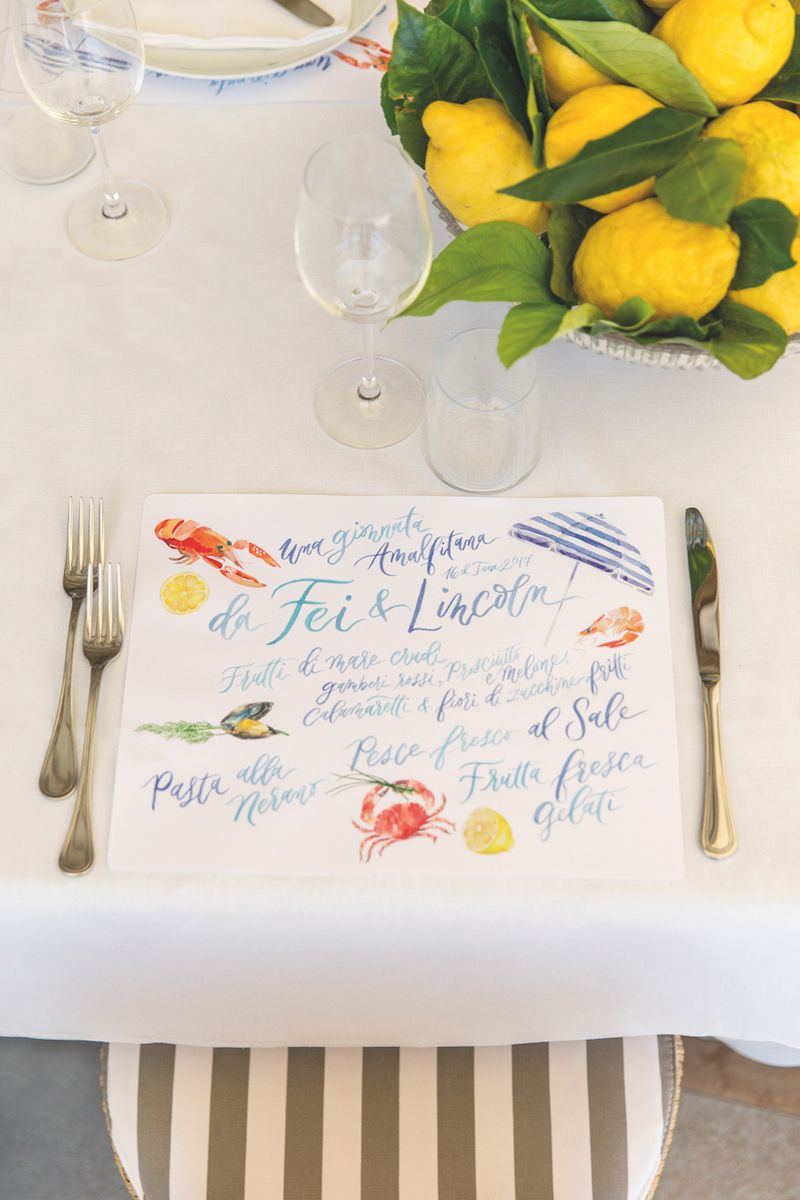 Una giornata
Amalfitana
16th June 2017
da Fei & Lincoln
Frutti di mare crudi
gamberi rossi, Prosciutto
e melone,
Calamaretti & fiori di zucchine fritti
Pesce fresco al Sale
Pasta alla
Nerano
Frutta fresca
gelati